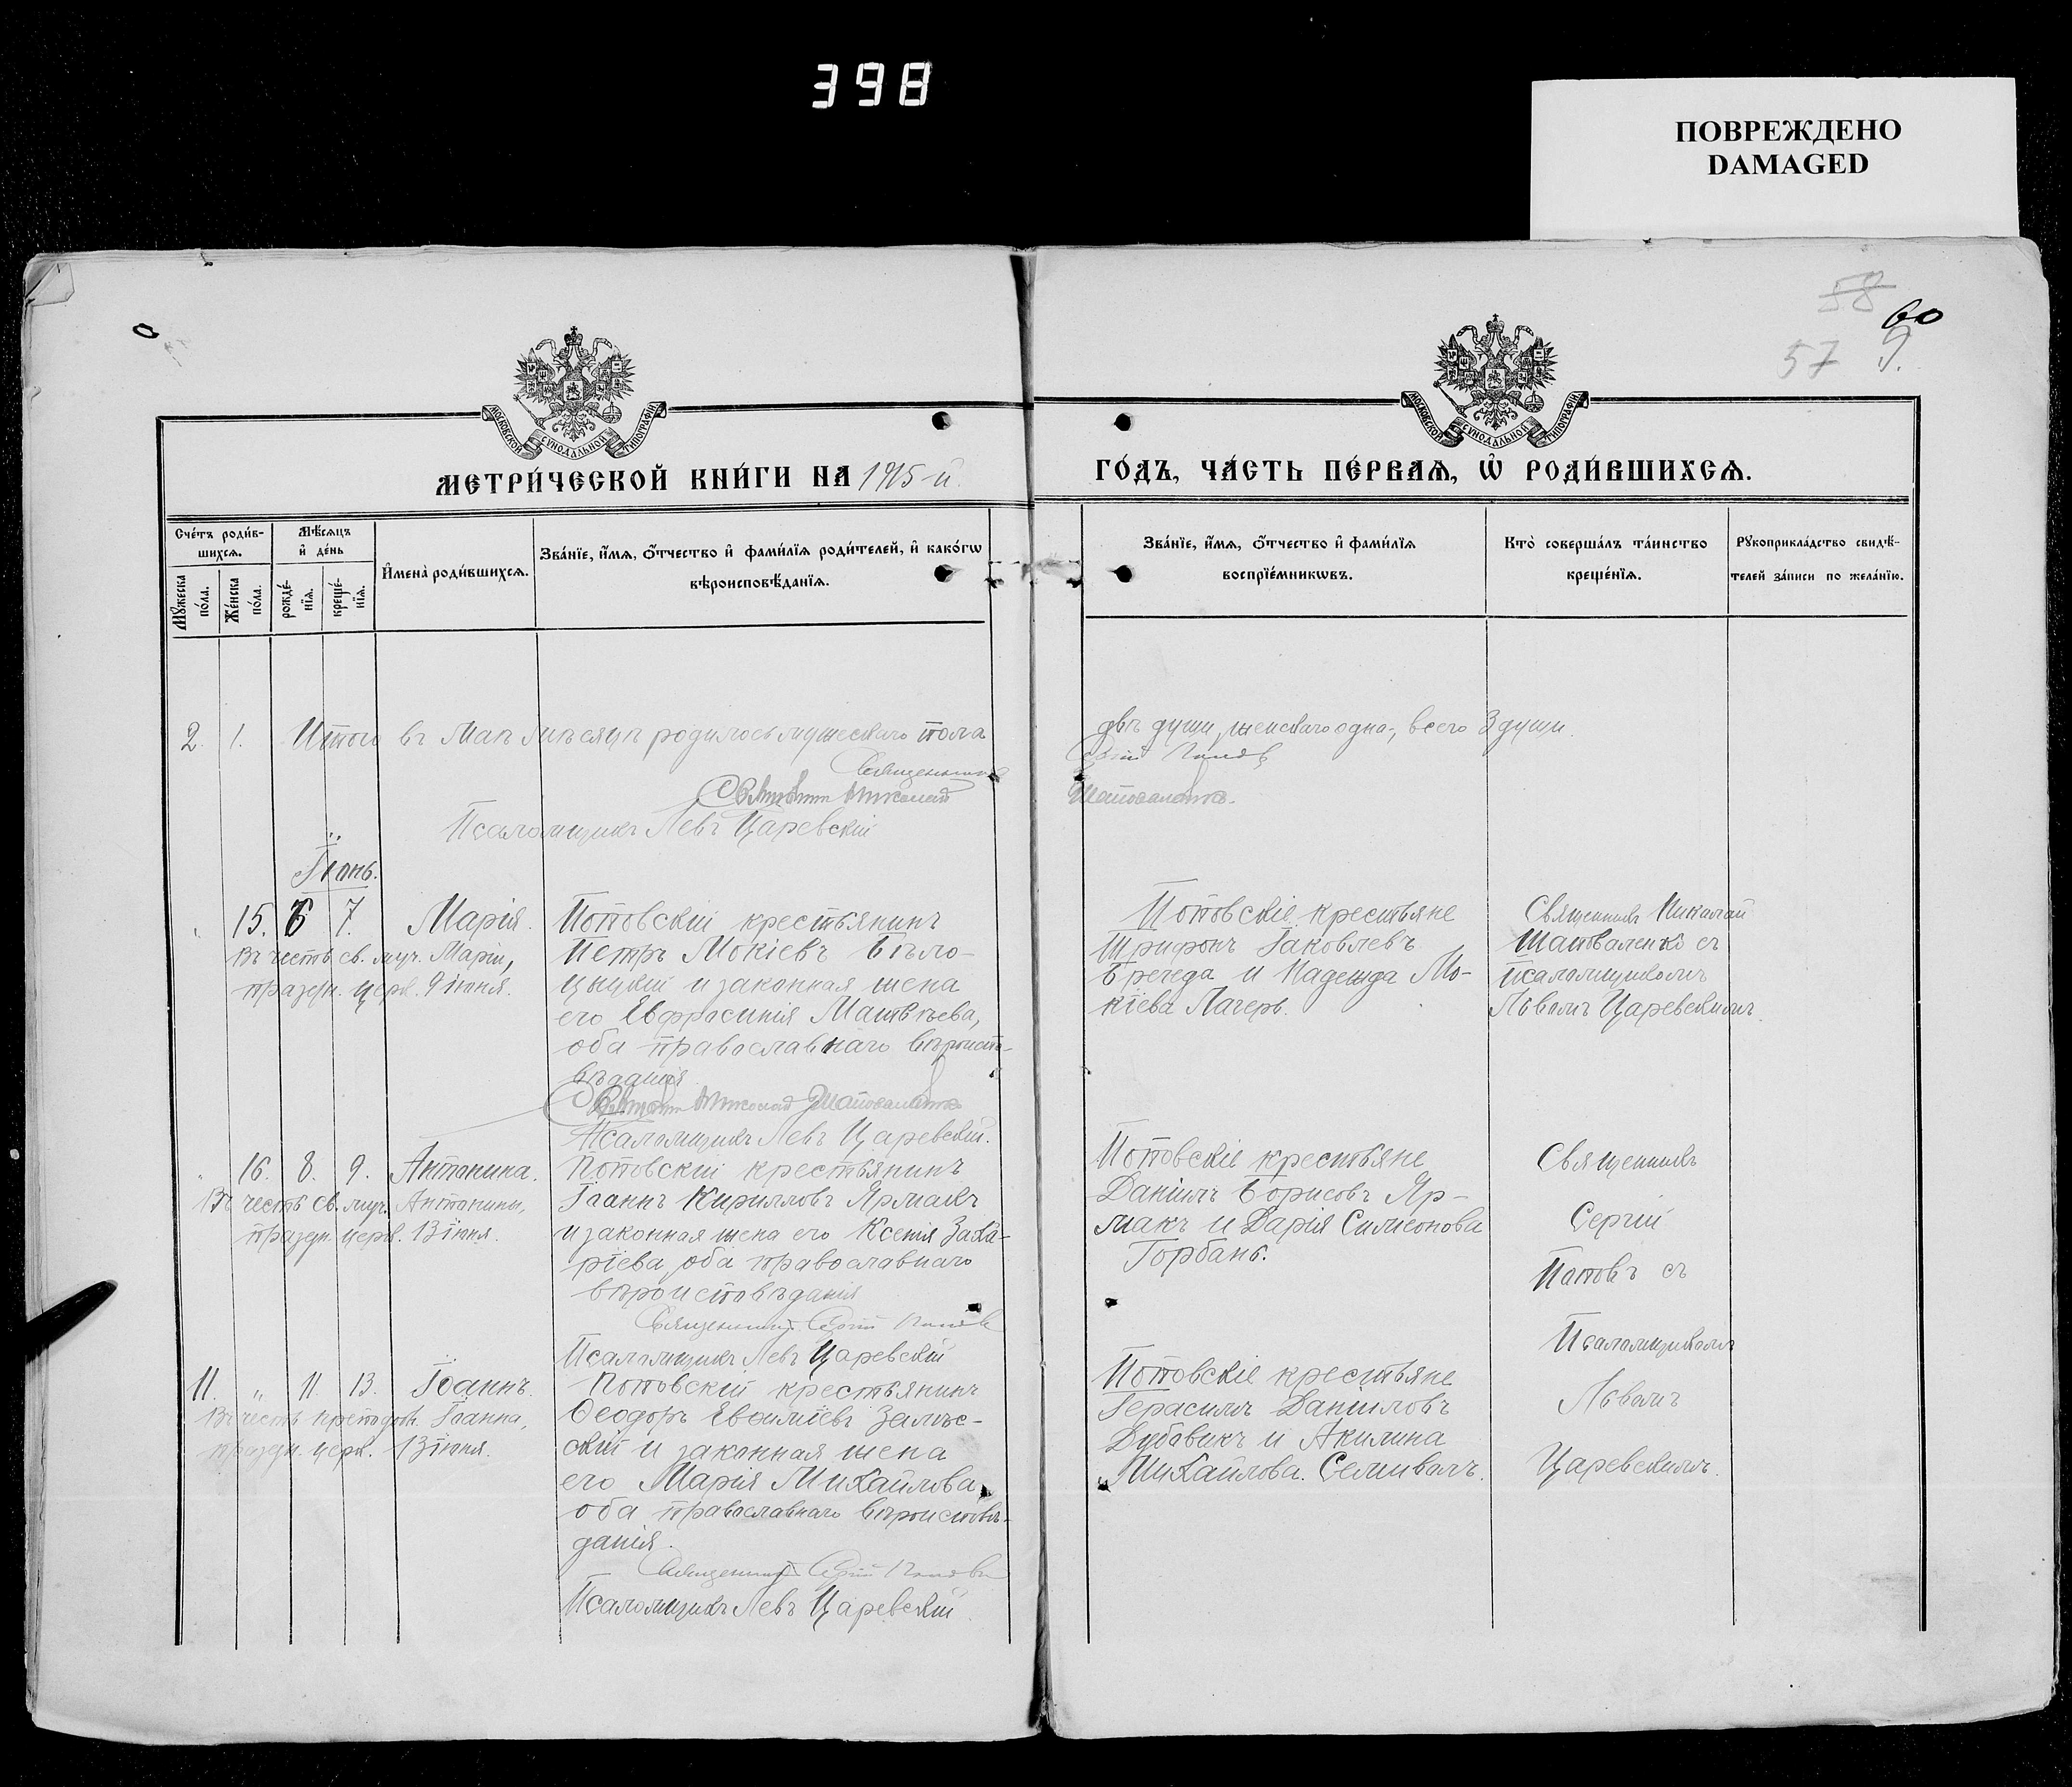 398
ПОВРЕЖДЕНО
DAMAGED
58
60
57 9.
МОСКОВСКОЙ СУНОДАЛЬНОЙ ТИПОГРАФІИ
МОСКОВСКОЙ СУНОДАЛЬНОЙ ТИПОГРАФІИ
МЕТРИ́ЧЕСКОЙ КНИ́ГИ НА 1915-й
ГО́ДЪ, ЧА́СТЬ ПЕ́РВАѦ, Ѡ҆ РОДИ́ВШИХСѦ.
Сче́тъ роди́в-
шихсѧ.
Мꙋ́жеска по́ла.
Же́нска по́ла.
Мѣ́сѧцъ
и҆ де́нь
рожде́-
нїѧ.
креще́-
нїѧ.
И҆мена̀ роди́вшихсѧ.
Зва́нїе, и҆́мѧ, ѻ҆́тчество и҆ фами́лїѧ роди́телей, и҆ како́гѡ
вѣроисповѣ́данїѧ.
Зва́нїе, и҆́мѧ, ѻ҆́тчество и҆ фами́лїѧ
воспрїе́мникѡвъ.
Кто̀ соверша́лъ та́инство
креще́нїѧ.
Рꙋкоприкла́дство свидѣ́-
телей за́писи по жела́нїю.
2. 1. Итого въ Маѣ мѣсяцѣ родилось мужескаго пола
двѣ души, женскаго одна, всего 3 души.
Священникъ
Сергій Поповъ
Священникъ Николай
Шаповаленко.
Псаломщикъ Левъ Царевскій
Іюнь.
15. 6 7. Марія.
Въ честь св. муч. Маріи,
праздн. церк. 9 іюня.
Поповскій крестьянинъ
Петръ Мокіевъ Бѣло-
цыцкій и законная жена
его Евфросинія Матвѣева,
оба православнаго вѣроиспо-
вѣданія
Священникъ Николай Шаповаленко
Псаломщикъ Левъ Царевскій.
Поповскіе крестьяне
Трифонъ Іаковлевъ
Бречеда и Надежда Мо-
кіева Лагерь.
Священникъ Николай
Шаповаленко съ
псаломщикомъ
Львомъ Царевскимъ
16. 8. 9. Антонина.
Въ честь св. муч. Антонины,
праздн. церк. 13 іюня.
Поповскій крестьянинъ
Іоаннъ Кирилловъ Ярмакъ
и законная жена его Ксенія Заха-
ріева, оба православнаго
вѣроисповѣданія
Священникъ Сергій Поповъ
Псаломщикъ Левъ Царевскій
Поповскіе крестьяне
Даніилъ Борисовъ Яр-
макъ и Дарія Симеонова
Горбань.
Священникъ
Сергій
Поповъ съ
Псаломщикомъ
Львомъ
Царевскимъ.
11. „ 11. 13. Іоаннъ.
Въ честь преподобн. Іоанна,
праздн. церк. 13 іюня.
Поповскій крестьянинъ
Ѳеодоръ Евѳиміевъ Залѣс-
скій и законная жена
его Марія Михайлова,
оба православнаго вѣроисповѣ-
данія.
Священникъ Сергій Поповъ
Псаломщикъ Левъ Царевскій.
Поповскіе крестьяне
Герасимъ Даніиловъ
Дубовикъ и Акилина
Михайлова. Селивалъ.